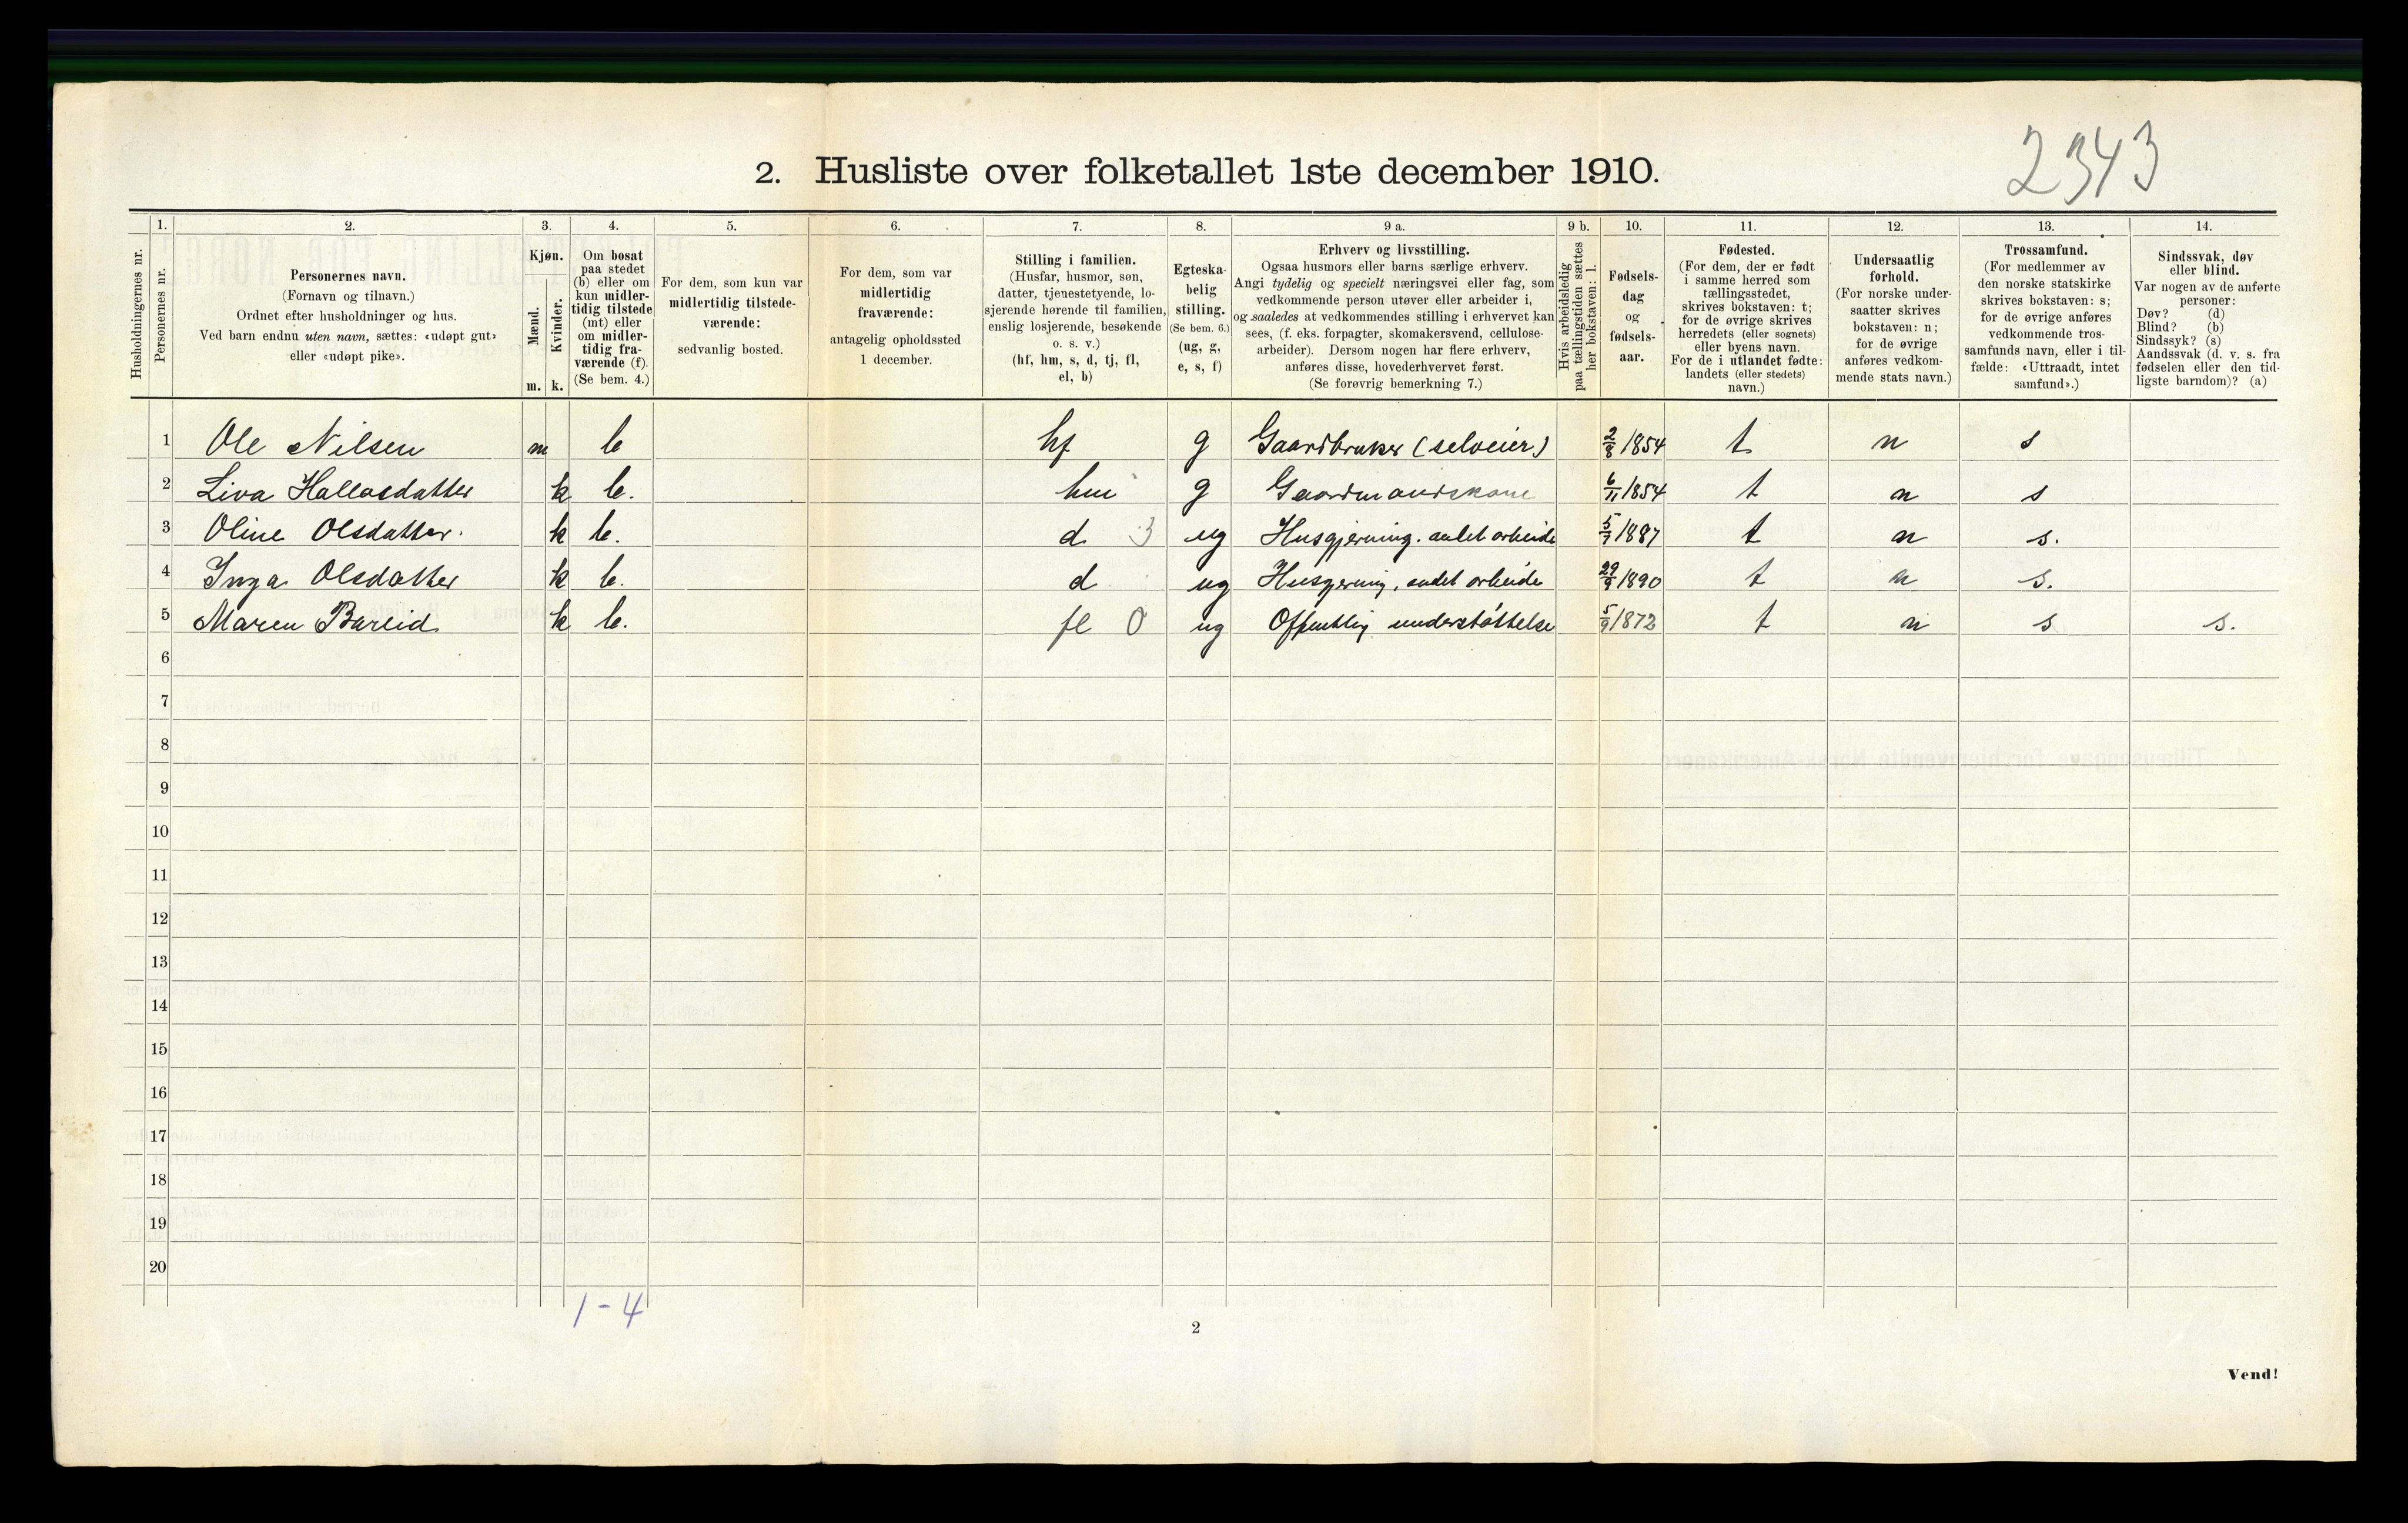 2343
2. Husliste over folketallet 1ste december 1910.
1. 2. 3. 4. 5. 6. 7. 8. 9 a. 9 b. 10. 11. 12. 13. 14.
Husholdningernes nr.
Personernes nr.
Personernes navn.
(Fornavn og tilnavn.)
Ordnet efter husholdninger og hus.
Ved barn endnu uten navn, sættes: «udøpt gut»
eller «udøpt pike».
Kjøn.
Mænd.
Kvinder.
m. k.
Om bosat
paa stedet
(b) eller om
kun midler-
tidig tilstede
(mt) eller
om midler-
tidig fra-
værende (f).
(Se bem. 4.)
For dem, som kun var
midlertidig tilstede-
værende:
sedvanlig bosted.
For dem, som var
midlertidig
fraværende:
antagelig opholdssted
1 december.
Stilling i familien.
(Husfar, husmor, søn,
datter, tjenestetyende, lo-
sjerende hørende til familien,
enslig losjerende, besøkende
o. s. v.)
(hf, hm, s, d, tj, fl,
el, b)
Egteska-
belig
stilling.
(Se bem. 6.)
(ug, g,
e, s, f)
Erhverv og livsstilling.
Ogsaa husmors eller barns særlige erhverv.
Angi tydelig og specielt næringsvei eller fag, som
vedkommende person utøver eller arbeider i,
og saaledes at vedkommendes stilling i erhvervet kan
sees, (f. eks. forpagter, skomakersvend, cellulose-
arbeider). Dersom nogen har flere erhverv,
anføres disse, hovederhvervet først.
(Se forøvrig bemerkning 7.)
Hvis arbeidsledig
paa tællingstiden sættes
her bokstaven: l.
Fødsels-
dag
og
fødsels-
aar.
Fødested.
(For dem, der er født
i samme herred som
tællingsstedet,
skrives bokstaven: t;
for de øvrige skrives
herredets (eller sognets)
eller byens navn.
For de i utlandet fødte:
landets (eller stedets)
navn.)
Undersaatlig
forhold.
(For norske under-
saatter skrives
bokstaven: n;
for de øvrige
anføres vedkom-
mende stats navn.)
Trossamfund.
(For medlemmer av
den norske statskirke
skrives bokstaven: s;
for de øvrige anføres
vedkommende tros-
samfunds navn, eller i til-
fælde: «Uttraadt, intet
samfund».)
Sindssvak, døv
eller blind.
Var nogen av de anførte
personer:
Døv? (d)
Blind? (b)
Sindssyk? (s)
Aandssvak (d. v. s. fra
fødselen eller den tid-
ligste barndom)? (a)
1 Ole Nilsen m b hf g Gaardbruker (selveier) 2/8 1854 t n s
2 Liva Hallasdatter k b. hm g Gaardmandskone 6/11 1854 t n s
3 Oline Olsdatter. k b. d 3 ug Husgjerning. andet arbeide 5/7 1887 t n s.
4 Inga Olsdatter k b. d ug Husgjerning, andet arbeide 29/9 1890 t n s.
5 Maren Bareid k b. fl 0 ug Offentlig understøttelse 5/9 1872 t n s s.
6
7
8
9
10
11
12
13
14
15
16
17
18
19
20
1-4
2
Vend!